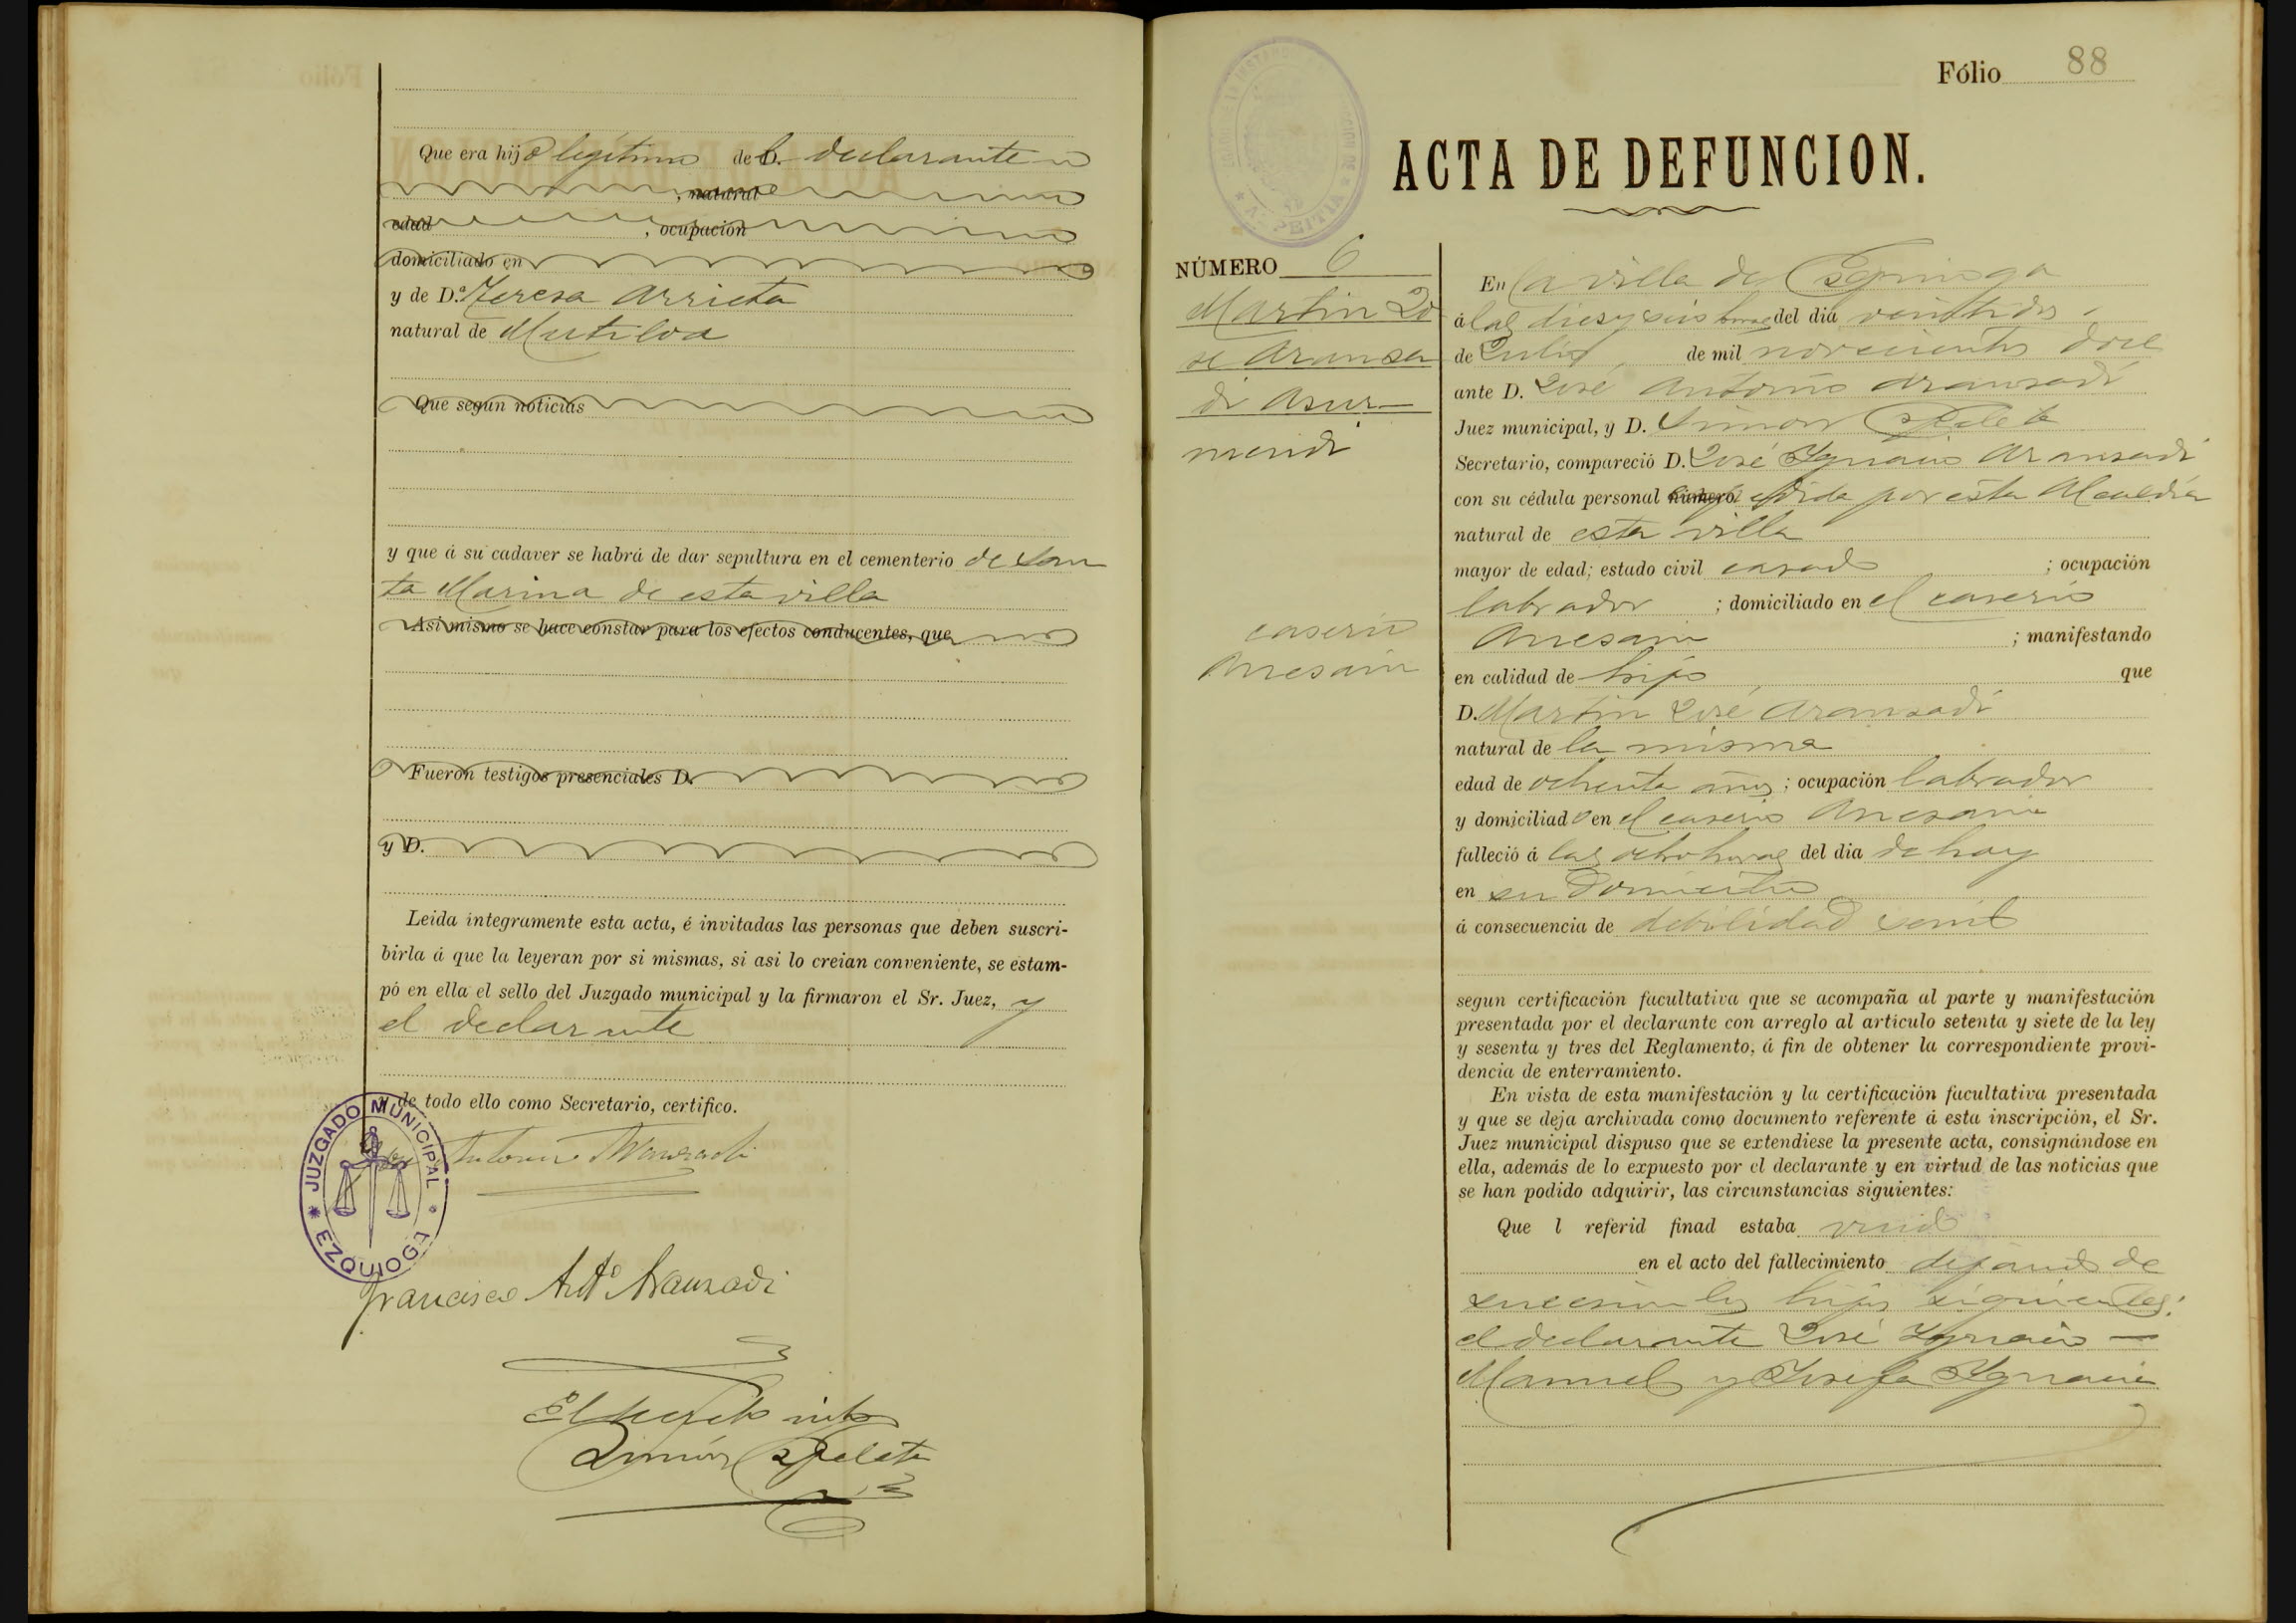 Que era hijo legítimo de l declarante
, natural
edad , ocupación
domiciliado en
y de D.ª Teresa Arrieta
natural de Mutiloa
Que segun noticias
y que á su cadaver se habrá de dar sepultura en el cementerio de San
ta Marina de esta villa
Asi mismo se hace constar para los efectos conducentes, que
Fueron testigos presenciales D.
y D.
Leida íntegramente esta acta, é invitadas las personas que deben suscri-
birla á que la leyeran por si mismas, si asi lo creian conveniente, se estam-
pó en ella el sello del Juzgado municipal y la firmaron el Sr. Juez, y
el declarante
y de todo ello como Secretario, certifico.
JUZGADO MUNICIPAL
EZQUIOGA
José Antonio Aranzadi
Francisco Antº Aranzadi
El Secretº intº
Simón
Fólio 88
ACTA DE DEFUNCION.
AZPEITIA
NÚMERO 6
Martin Jo
se Aransa
di Asur
mendi
caserio
Anesarri
En la villa de Ezquioga
á las diesyseis horas del dia veintidos
de Julio de mil novecientos doce
ante D. José Antonio Aransadi
Juez municipal, y D. Simon
Secretario, compareció D. José Ygnacio Aransadi
con su cédula personal número espedida por esta Alcaldia
natural de esta villa
mayor de edad; estado civil casado ; ocupación
labrador ; domiciliado en el caserio
Anesarri ; manifestando
en calidad de hijo que
D. Martin José Aransadi
natural de la misma
edad de ochenta años ; ocupación labrador
y domiciliado en el caserio Anesarri
falleció á las ocho horas del dia de hoy
en su domicilio
á consecuencia de debilidad senil
segun certificación facultativa que se acompaña al parte y manifestación
presentada por el declarante con arreglo al articulo setenta y siete de la ley
y sesenta y tres del Reglamento, á fin de obtener la correspondiente provi-
dencia de enterramiento.
En vista de esta manifestación y la certificación facultativa presentada
y que se deja archivada como documento referente á esta inscripción, el Sr.
Juez municipal dispuso que se extendiese la presente acta, consignándose en
ella, además de lo expuesto por el declarante y en virtud de las noticias que
se han podido adquirir, las circunstancias siguientes:
Que l referid finad estaba viudo
en el acto del fallecimiento dejando de
sucesion los hijos siguientes:
el declarante José Ygnacio —
Manuel y Josefa Ygnacia